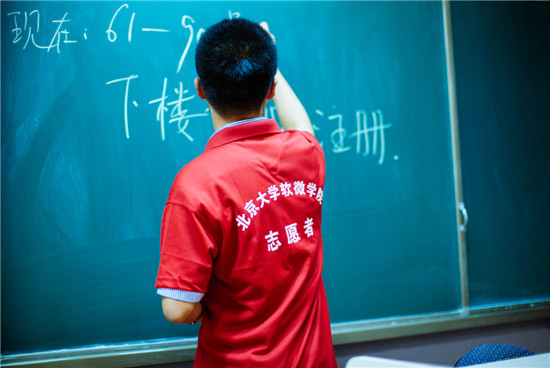 现在: 61—9
下楼 注册.
北京大学软微学院
志愿者